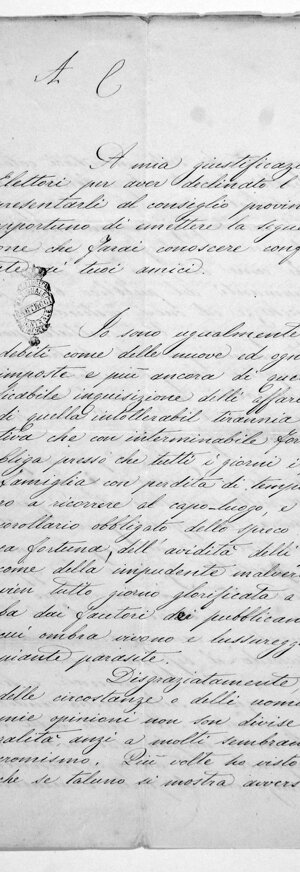 A C
A mia giustificazi
Elettori per aver declinato l
presentarli al consiglio provin
opportuno di emettere la segue
one che farai conoscere cong
te, ai tuoi amici.
Io sono ugualmente
debiti come delle nuove ed ogn
imposte e più ancora di que
cabile inquisizione dell' affare
di quella intollerabil tirannia
tiva che con interminabile for
bliga presso che tutti i giorni i
famiglia con perdita di tempo
ro a ricorrere al capo-luogo, e
corollario obbligato dello spreco
ca fortuna, dell' avidità dell'
come della impudente malver
vien tutto giorno glorificata a
ba dai fautori dei pubblican
cui ombra vivono e lussuregg
piante parasite.
Disgraziatamente
delle circostanze o delli uomi
mie opinioni non son divise
ralità, anzi a molti sembran
cronismo. Più volte ho visto
che se taluno si mostra avvers